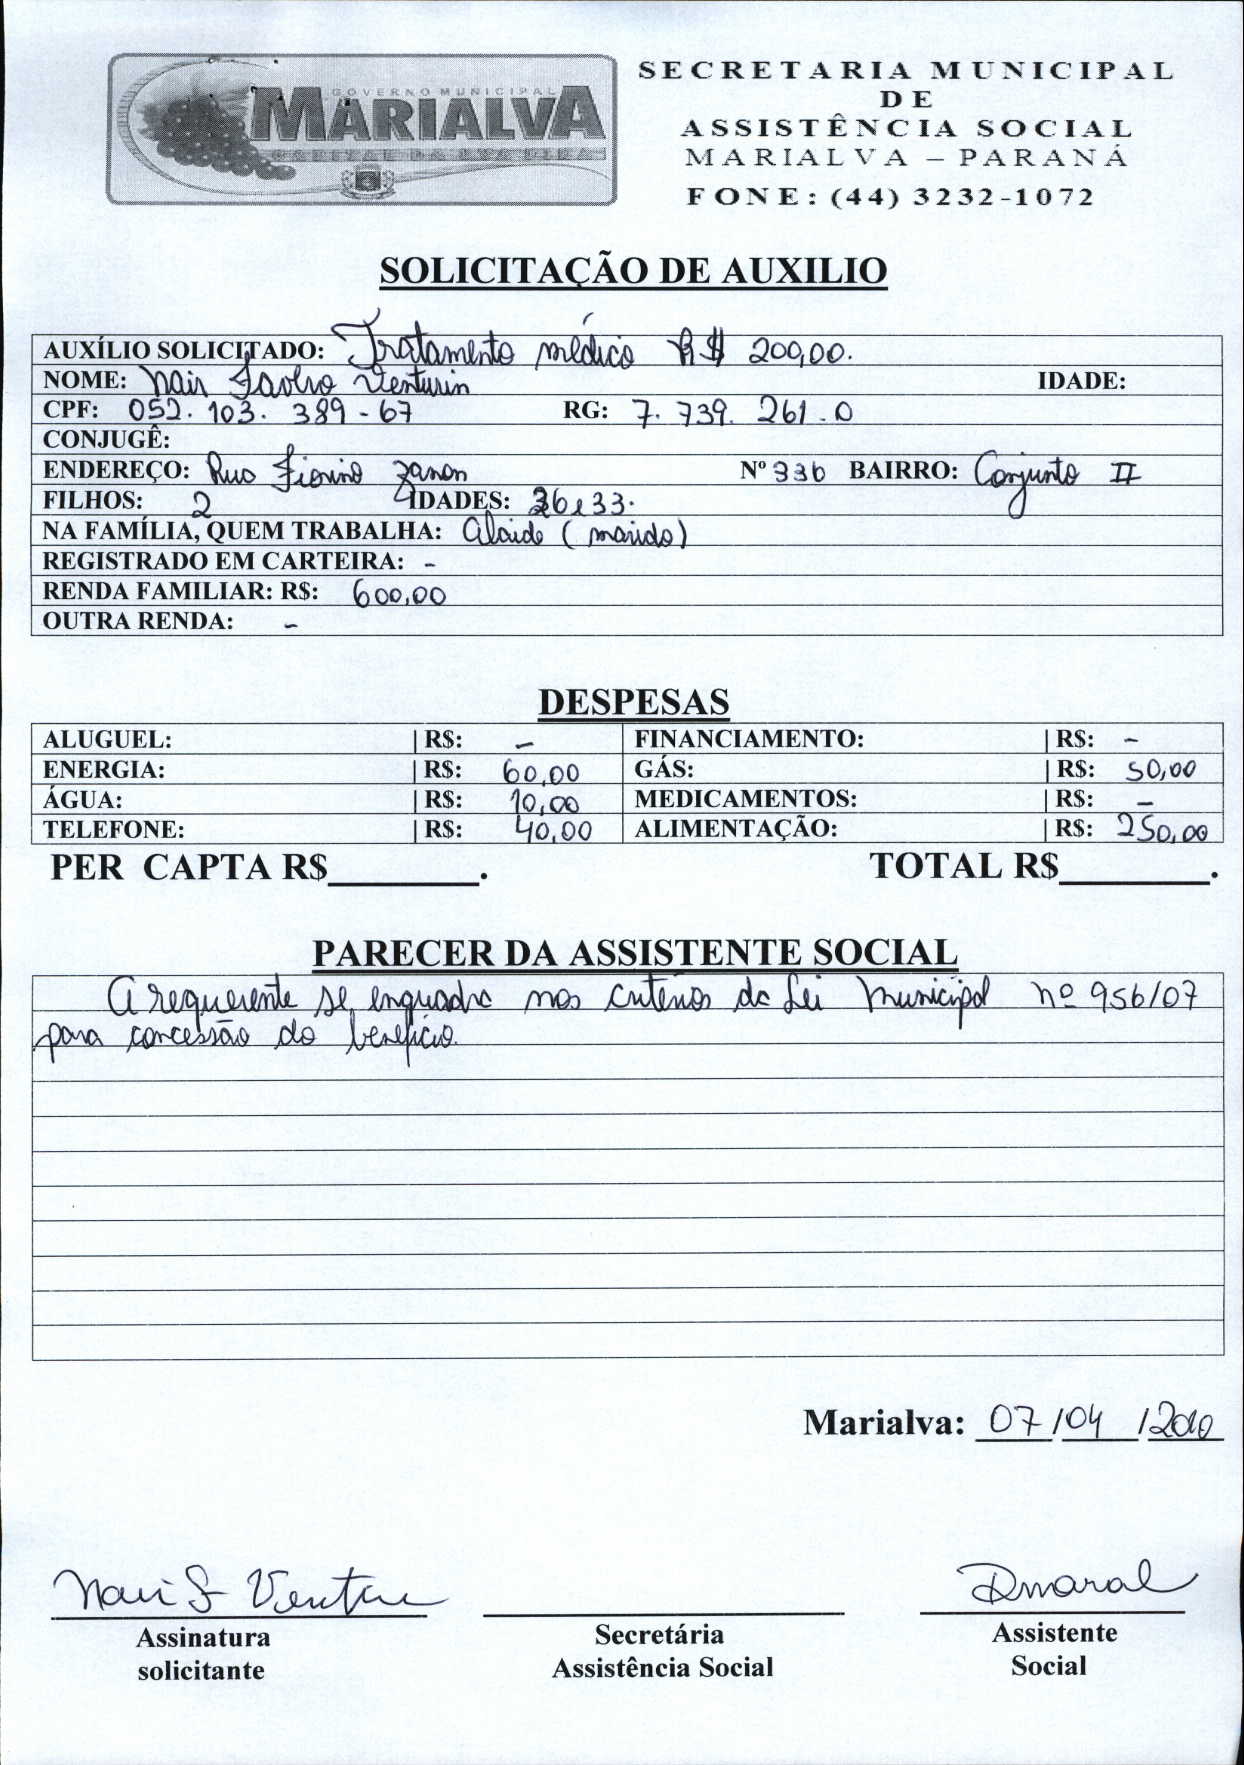 GOVERNO MUNICIPAL
MARIALVA
CAPITAL DA UVA FINA
SECRETARIA MUNICIPAL
DE
ASSISTÊNCIA SOCIAL
MARIALVA – PARANÁ
FONE: (44) 3232-1072
SOLICITAÇÃO DE AUXILIO
AUXÍLIO SOLICITADO: Tratamento médico R$ 200,00.
NOME: Nair Venturin IDADE:
CPF: 052.103.389-67 RG: 7.739.261.0
CONJUGÊ:
ENDEREÇO: Rua Zanon Nº 336 BAIRRO: Conjunto II
FILHOS: 2 IDADES: 36 e 33.
NA FAMÍLIA, QUEM TRABALHA: Alaide (marido)
REGISTRADO EM CARTEIRA: -
RENDA FAMILIAR: R$: 600,00
OUTRA RENDA: -
DESPESAS
ALUGUEL: | R$: - FINANCIAMENTO: | R$: -
ENERGIA: | R$: 60,00 GÁS: | R$: 50,00
ÁGUA: | R$: 10,00 MEDICAMENTOS: | R$: -
TELEFONE: | R$: 40,00 ALIMENTAÇÃO: | R$: 250,00
PER CAPTA R$________. TOTAL R$________.
PARECER DA ASSISTENTE SOCIAL
A requerente se enquadra nos critérios da Lei Municipal nº 956/07
para concessão do benefício.
Marialva: 07/04/2010
Nair F Ventur
Amaral
Assinatura
solicitante
Secretária
Assistência Social
Assistente
Social